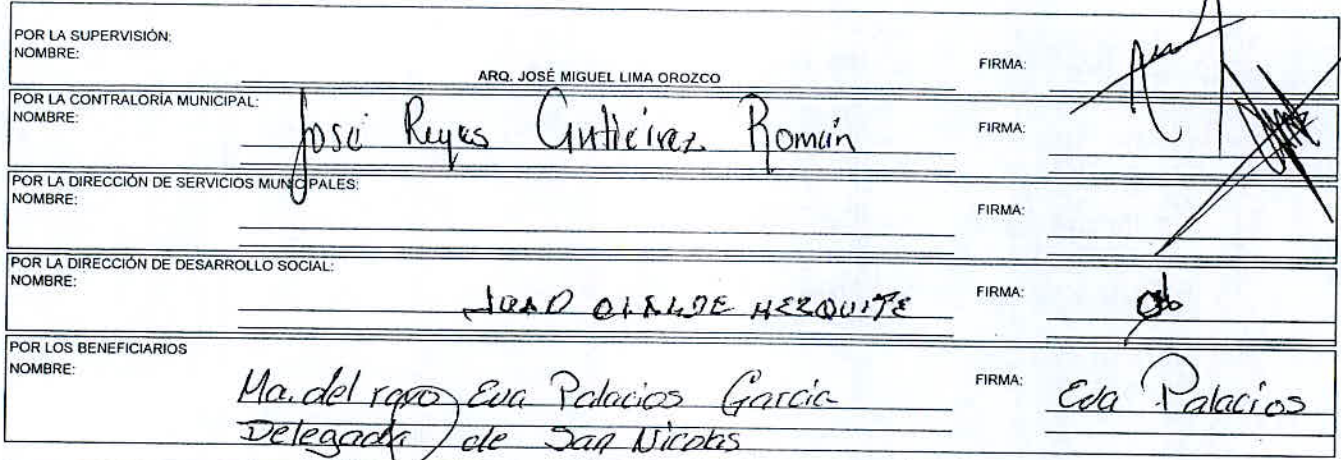 POR LA SUPERVISIÓN:
NOMBRE:
ARQ. JOSÉ MIGUEL LIMA OROZCO
FIRMA:
POR LA CONTRALORÍA MUNICIPAL:
NOMBRE:
José Reyes Gutiérrez Román
FIRMA:
POR LA DIRECCIÓN DE SERVICIOS MUNICIPALES:
NOMBRE:
FIRMA:
POR LA DIRECCIÓN DE DESARROLLO SOCIAL:
NOMBRE:
JUAN OLALDE MEZQUITE
FIRMA:
POR LOS BENEFICIARIOS
NOMBRE:
Ma. del rayo Eva Palacios García
FIRMA: Eva Palacios
Delegada de San Nicolas